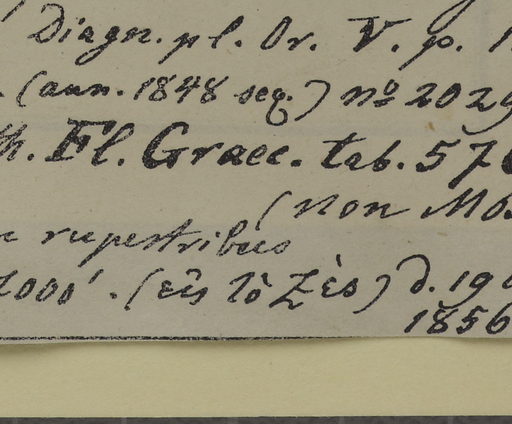 Diagn. pl. Or. V. p.
(aun. 1848 seq.) nº 2029
Fl. Graec. tab. 57
(non
rupestribus
(εἰς τὸ Ζὲς) d. 19
1856